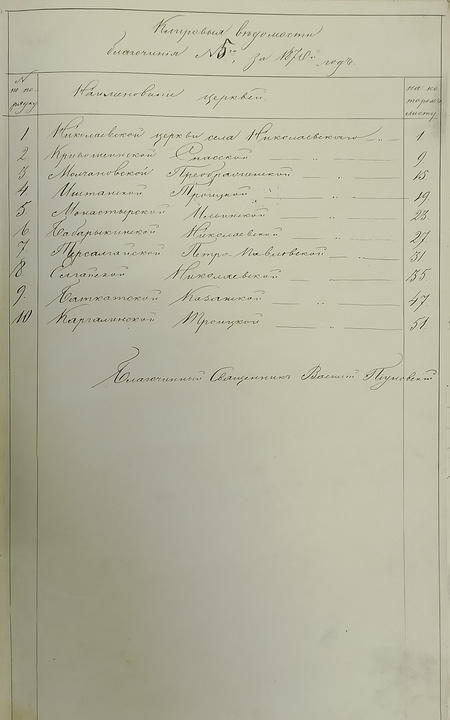 Клировыя вѣдомости
благочинія № 5го, за 1870й годъ.
№ по порядку
Наименованіе церквей
на котором листу
1 Николаевской церкви села Николаевскаго 1
2 Кривошеинской Спасской „ 9
3 Молчановской Преображенской „ 15
4 Иштанской Троицкой „ 19
5 Монастырской Ильинской „ 23
6 Бабарыкинской Николаевской „ 27
7 Петро-Павловской 31
8 Николаевской „ 35
9 Баткатской Казанской „ 47
10 Каргалинской Троицкой „ 51
Благочинный Священникъ Василій